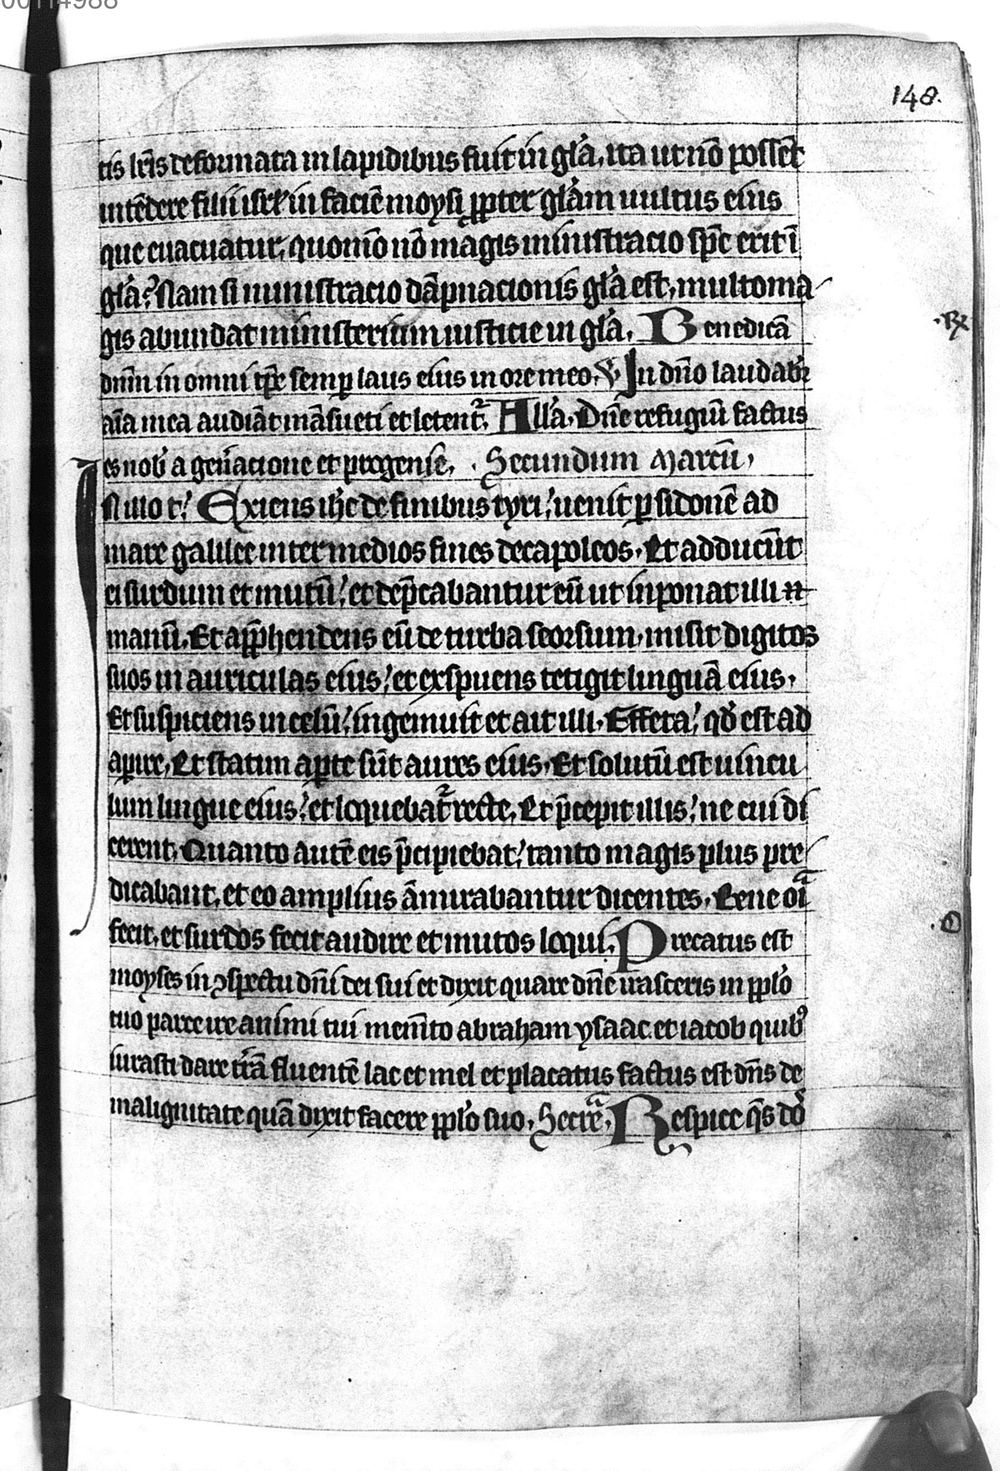 00114988
148.
tis lr̃is deformata in lapidibus fuit in gl̃a, ita ut nõ possẽt
intẽdere filii isrl̃ in faciẽ moysi ꝓpter gl̃am uultus eius
que euacuatur, quomõ nõ magis ministracio sp̃c erit ĩ
gl̃a? Nam si ministracio dãpnacionis gl̃a est, multo ma
gis abundat ministerium iusticie in gl̃a. Benedicã
.R̸
dnm̃ in omni tp̃r semꝑ laus eius in ore meo. V̸ In dño laudabr̃
aĩa mea audiãt mãsueti et letent᷑. All̃a. Dñe refugiũ factus
es nob̃ a gen̾acione et progenie, . Secundum Marcũ,
In illo t̾. Exiens ih̃c de finibus tyri, uenit ꝑ sidonẽ ad
mare galilee inter medios fines decapoleos. Et adducũt
ei surdum et mutũ, et dep̃cabantur eũ ut inponat illi
manũ. Et app̃hendens eũ de turba seorsum, misit digitos
suos in auriculas eius, et exspuens tetigit linguã eius.
Et suspiciens in celũ, ingemuit et ait illi. Effeta, qđ est ad
apire, Et statim aꝑte sũt aures eius. Et solutũ est uincu
lum lingue eius, et loquebat᷑ recte. Et p̃cepit illis, ne cui di
cerent. Quanto autẽ eis p̃cipiebat, tanto magis plus pre
dicabant, et eo amplius ãmirabantur dicentes. Bene oĩa
fecit, et surdos fecit audire et mutos loqui. Precatus est
.O
moyses in ꝯspectu dñi dei sui et dixit quare dñe irasceris in ppl̃o
tuo parce ire animi tui mem̃to abraham ysaac et iacob quib᷒
iurasti dare tr̃ã fluentẽ lac et mel et placatus factus est dñs de
malignitate quã dixit facere ppl̃o suo. Secreᷓ. Respice q̃s dõ